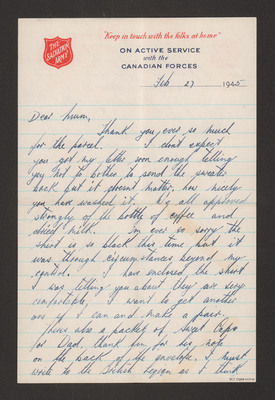 THE
SALVATION
ARMY
"Keep in touch with the folks at home"
ON ACTIVE SERVICE
with the
CANADIAN FORCES
Feb 27 1945
Dear Mum,
Thank you ever so much
for the parcel. I don't expect
you got my letter soon enough telling
you not to bother to send the sweater
back but it doesn't matter, how nicely
you have washed it. We all approved
strongly of the bottle of coffee and
dried milk. I'm ever so sorry the
shirt is so black this time but it
was through circumstances beyond my
control. I have enclosed the shirt
I was telling you about they are very
comfortable, I want to get another
one if I can and make a pair.
Theres also a packet of Sweet Caps
for Dad, thank him for his note
on the back of the envelope. I must
write to the British Legion as I think